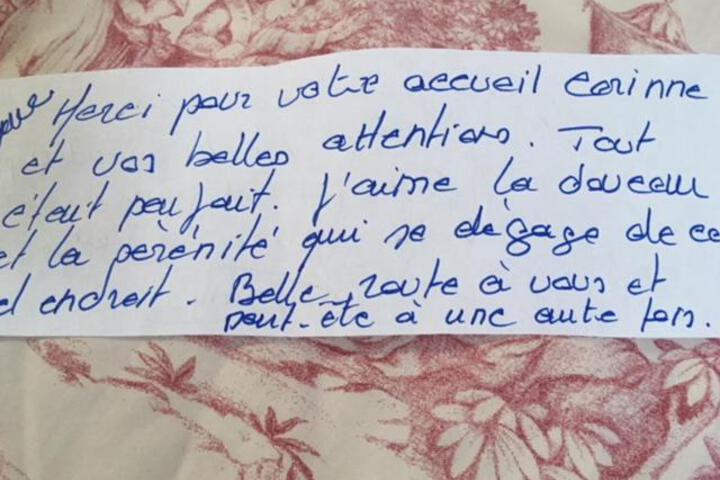 Merci pour votre accueil Corinne
et vos belles attentions. Tout
c'était parfait. J'aime la douceur
et la pérénité qui se dégage de ce
endroit. Belle route à vous et
peut-être à une autre fois.